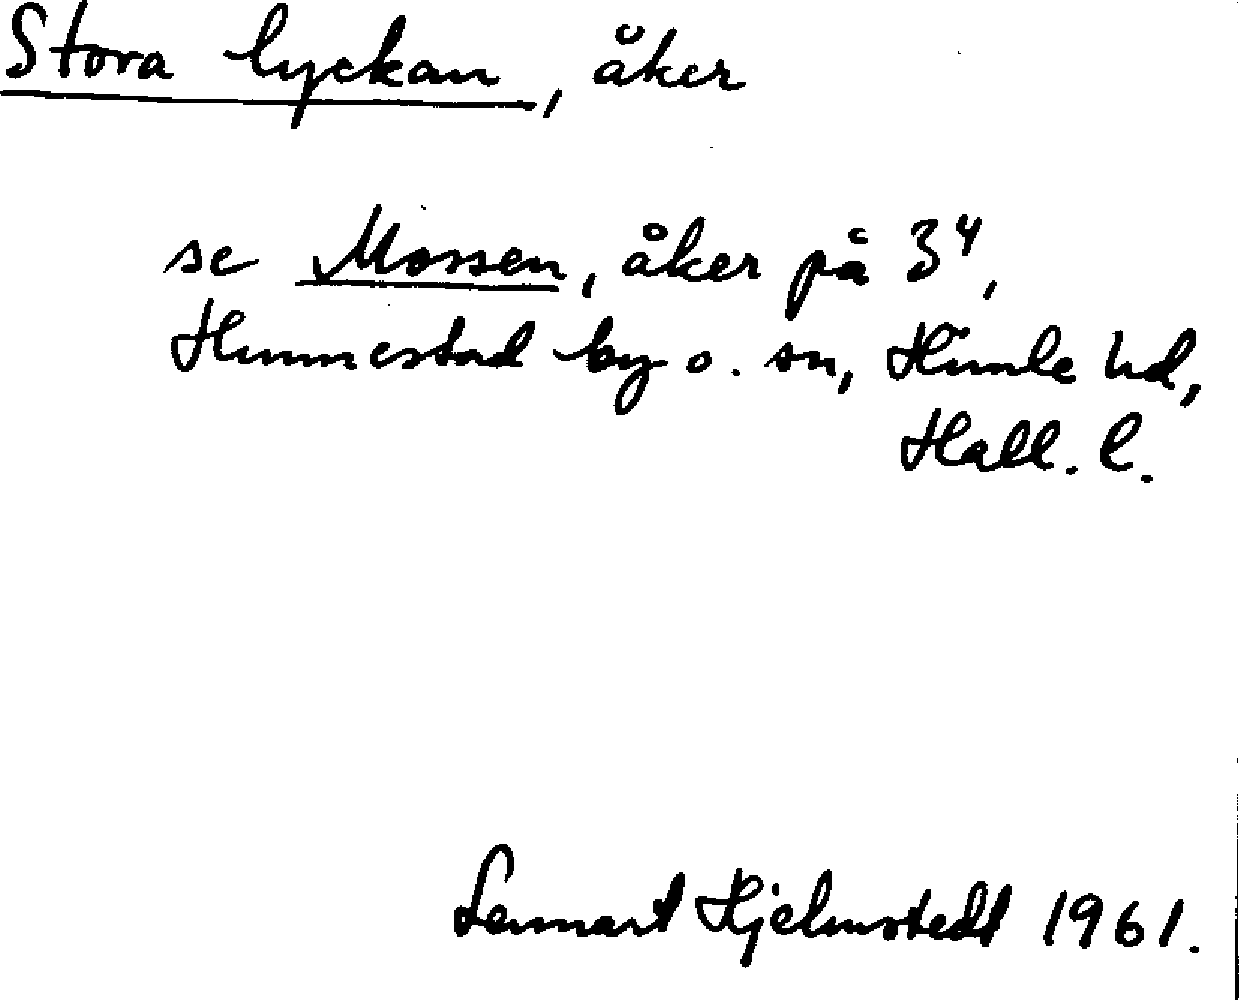 Stora lyckan, åker
se Mossen, åker på 3⁴,
Hunnestad by o. sn, Himle hd,
Hall. l.
Lennart Hjelmstedt 1961.